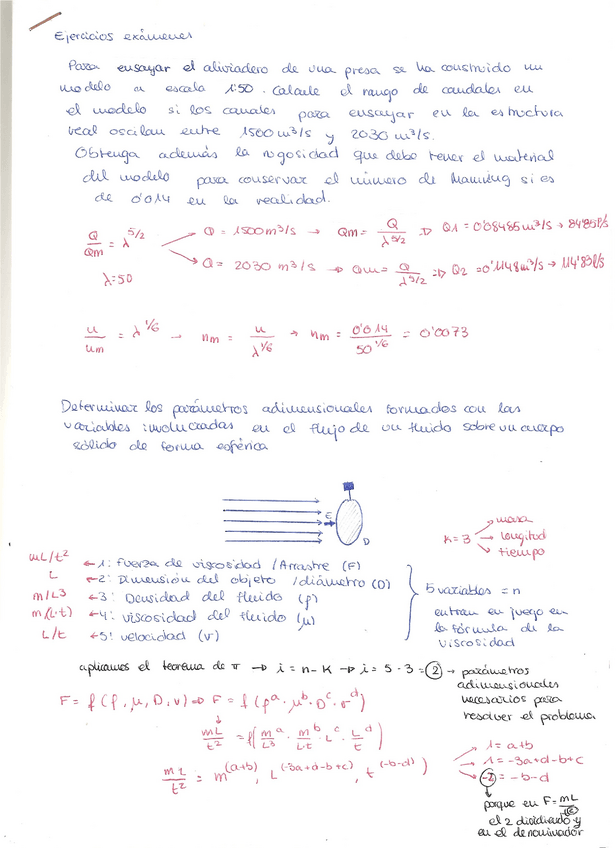 Ejercicios exámenes
Para ensayar el aliviadero de una presa se ha construido un
modelo a escala 1:50. Calcule el rango de caudales en
el modelo si los canales para ensayar en la estructura
real oscilan entre 1500 m³/s y 2030 m³/s.
Obtenga además la rugosidad que debe tener el material
del modelo para conservar el número de Manning si es
de 0'014 en la realidad.
Q/Qm = λ^5/2
Q = 1500 m³/s → Qm = Q/λ^5/2 ⇒ Q1 = 0'08485 m³/s → 84'85 l/s
Q = 2030 m³/s → Qm = Q/λ^5/2 ⇒ Q2 = 0'1148 m³/s → 114'83 l/s
λ=50
u/um = λ^1/6 → nm = u/λ^1/6 → nm = 0'014/50^1/6 = 0'0073
Determinar los parámetros adimensionales formados con las
variables involucradas en el flujo de un fluido sobre un cuerpo
sólido de forma esférica
E
D
K=3 → masa
→ longitud
→ tiempo
mL/t² ← 1: Fuerza de viscosidad / Arrastre (F)
L ← 2: Dimensión del objeto / diámetro (D)
m/L³ ← 3: Densidad del fluido (ρ)
m/(L·t) ← 4: viscosidad del fluido (μ)
L/t ← 5: velocidad (v)
5 variables = n
entran en juego en
la fórmula de la
viscosidad
aplicamos el teorema de π → i = n-K → i = 5-3 = 2 → parámetros
adimensionales
necesarios para
resolver el problema
F = f(ρ, μ, D, v) ⇒ F = f(ρ^a · μ^b · D^c · v^d)
mL/t² = f(m^a/L³ · m^b/L·t · L^c · L^d/t)
mL/t² = m^(a+b), L^(-3a+d-b+c), t^(-b-d))
1 = a+b
1 = -3a+d-b+c
-2 = -b-d
porque en F = mL/t²
el 2 dividiendo y
en el denominador